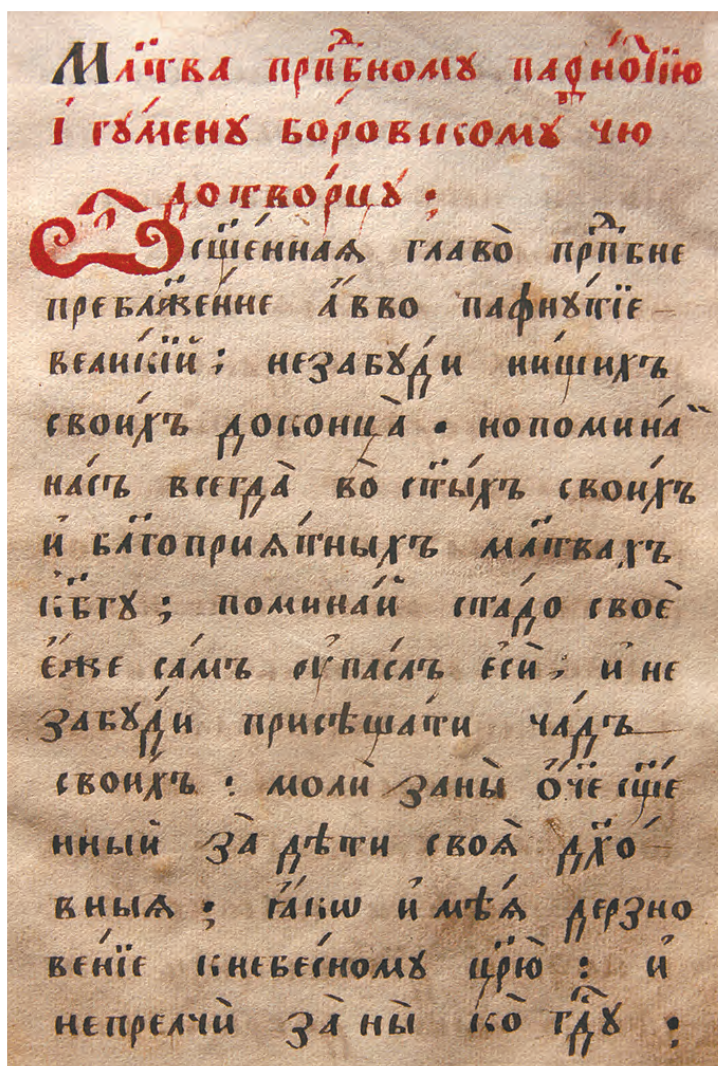 Мл҃тва прпⷣбному пафно́тїю
і гу́мену бо́ровскомуⷹ чю
дотво́рцу .
Ѽ сщ҃е́нная главо̀ прпⷣбне
преблаже́нне а҆́вво пафну́тїе
вели́кїй ; незабу́ди ни́щихъ
свои́хъ доконца̀ . нопомина́й
на́съ всегда̀ во̀ ст҃ы́хъ свои́хъ
и҆ бл҃гоприя́тныхъ мл҃твахъ
кб҃гу ; помина́й ста́до своѐ
е҆́же са́мъ ѹпа́слъ есѝ ; и҆ не
забу́ди присѣща́ти ча́дъ
свои́хъ : молѝ заны̀ о҆́ч҃е сщ҃е
нный за̀ дѣ́ти своѧ̀ дх҃о́
вныѧ ; ꙗ҆́кѡ и҆мѣ́ѧ дерзно
ве́нїе кнебе́сному цр҃ю̀ : и҆
непрелчѝ за̀ ны̀ ко̀ гдⷭ҇у :